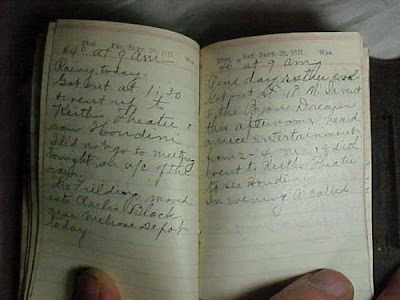 Ther. Fri. Sept. 29, 1911 Wea.
64° at 9 am
Rainy today.
Got out at 1:30
& went up to
Keiths Theatre &
saw "Houdini"
I did not go to meeting
tonight on a/c of the
rain
The Fieldings moved
into Charlie Block
near Melrose Depot
today
Ther. Sat. Sept. 30, 1911 Wea.
at 9 am
Fine day rather cool
Got out at 1 P.M. & went
to the Brown
this afternoon, heard
a nice entertainment
from 2 - 4,
went to Keiths Theatre
to see Houdini
In evening A called